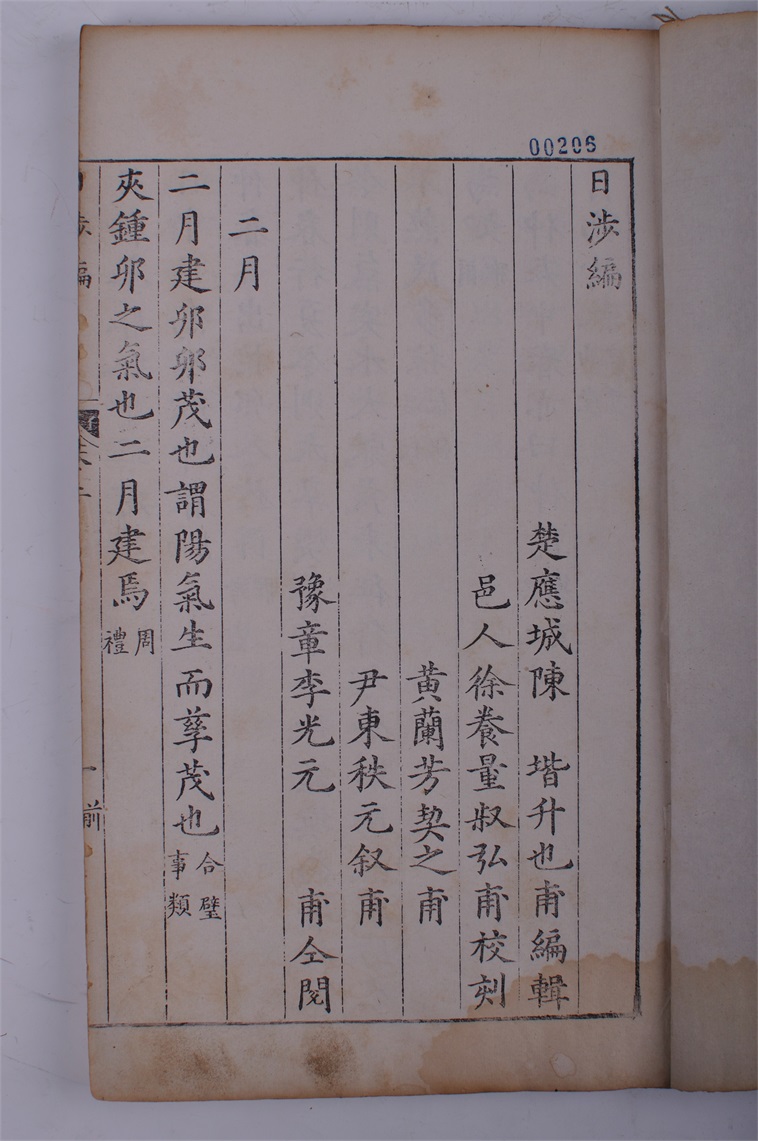 00206
日涉編
楚應城陳　堦升也甫編輯
邑人徐養量叔弘甫校刻
黃蘭芳契之甫
尹東秩元叙甫
豫章李光元　甫仝閱
二月
二月建卯卯茂也謂陽氣生而孳茂也合璧事類
夾鍾卯之氣也二月建焉周禮